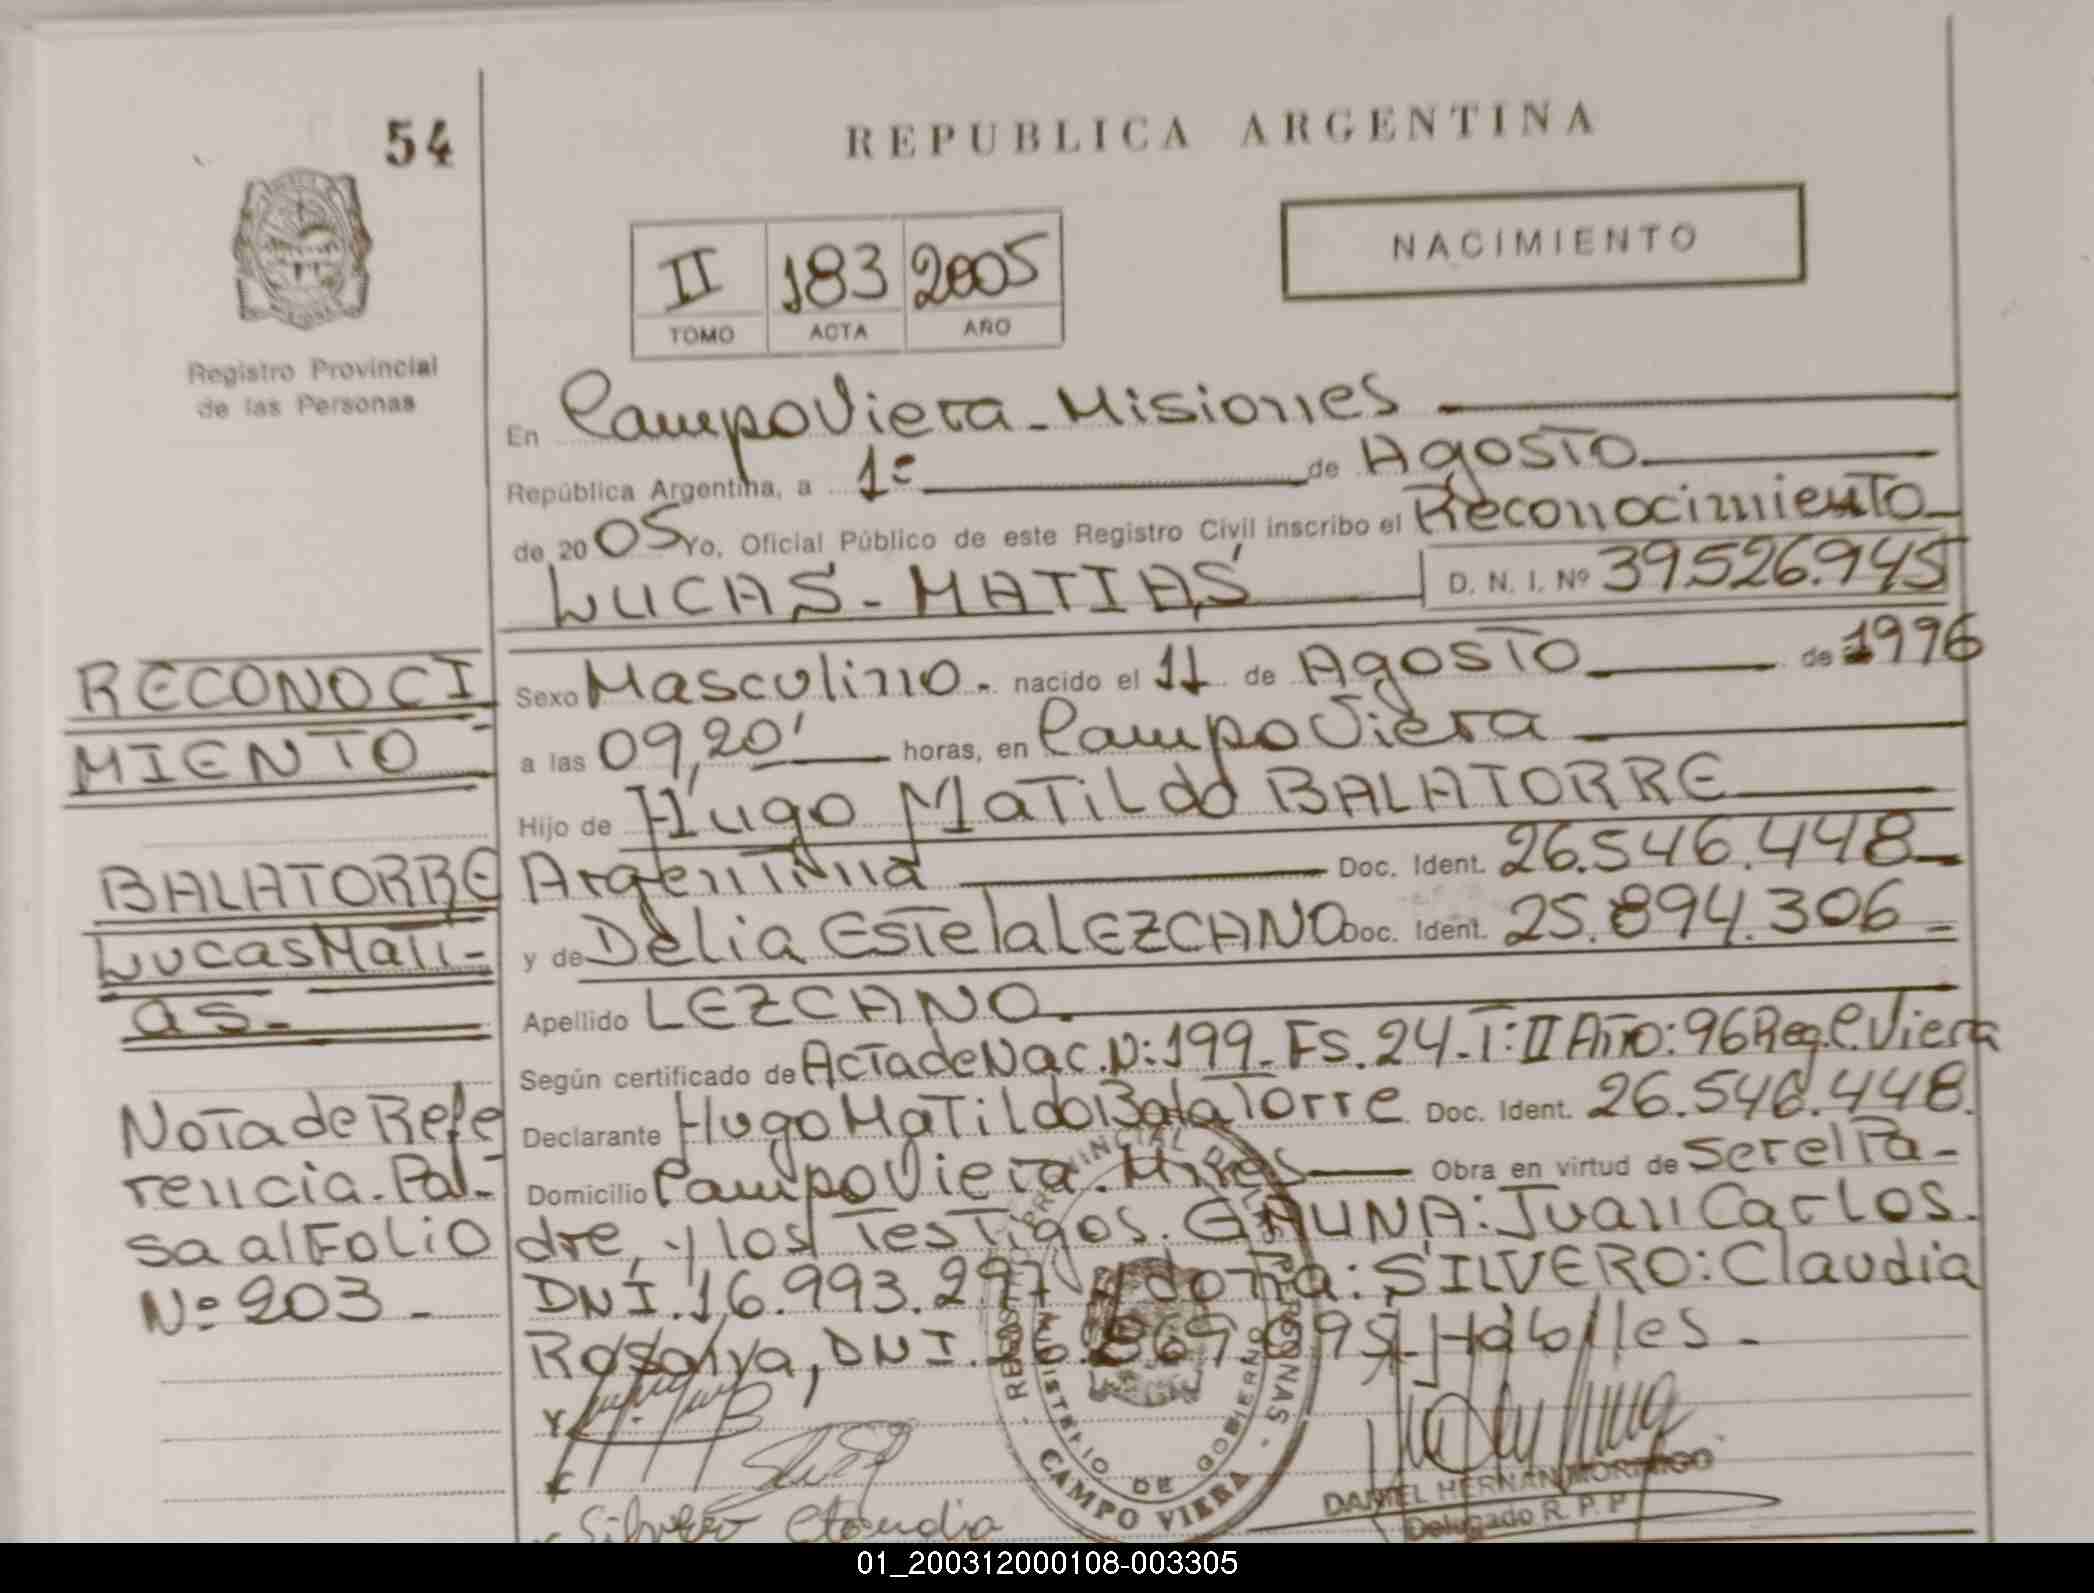 54
REPUBLICA ARGENTINA
NACIMIENTO
II 183 2005
TOMO ACTA AÑO
Registro Provincial
de las Personas
En Campo Viera - Misiones
República Argentina, a 1º de Agosto
de 2005 Yo, Oficial Público de este Registro Civil inscribo el Reconocimiento
LUCAS - MATIAS D. N. I. Nº 39.526.945
RECONOCI
MIENTO
BALATORRE
Lucas Mati-
as.-
Nota de Refe
rencia. Pa-
sa al Folio
Nº 203 -
Sexo Masculino. nacido el 11 de Agosto de 1996
a las 09,20' horas, en Campo Viera
Hijo de Hugo Matildo BALATORRE
Argentina Doc. Ident. 26.546.448
y de Delia Estela LEZCANO Doc. Ident. 25.894.306
Apellido LEZCANO
Según certificado de Acta de Nac. N: 199 - Fs. 24 - T: II Año: 96 Reg. C. Viera
Declarante Hugo Matildo Balatorre Doc. Ident. 26.546.448.
Domicilio Campo Viera. Mnes Obra en virtud de ser el Pa-
dre, y los Testigos. GAUNA: Juan Carlos.
DNI. 16.993.297 y doña: SILVERO: Claudia
Rosalva, DNI. Hábiles -
REGISTRO PROVINCIAL DE LAS PERSONAS
MINISTERIO DE GOBIERNO
CAMPO VIERA
Silvero Claudia
DANIEL HERNAN
Delegado R. P. P.
01_200312000108-003305